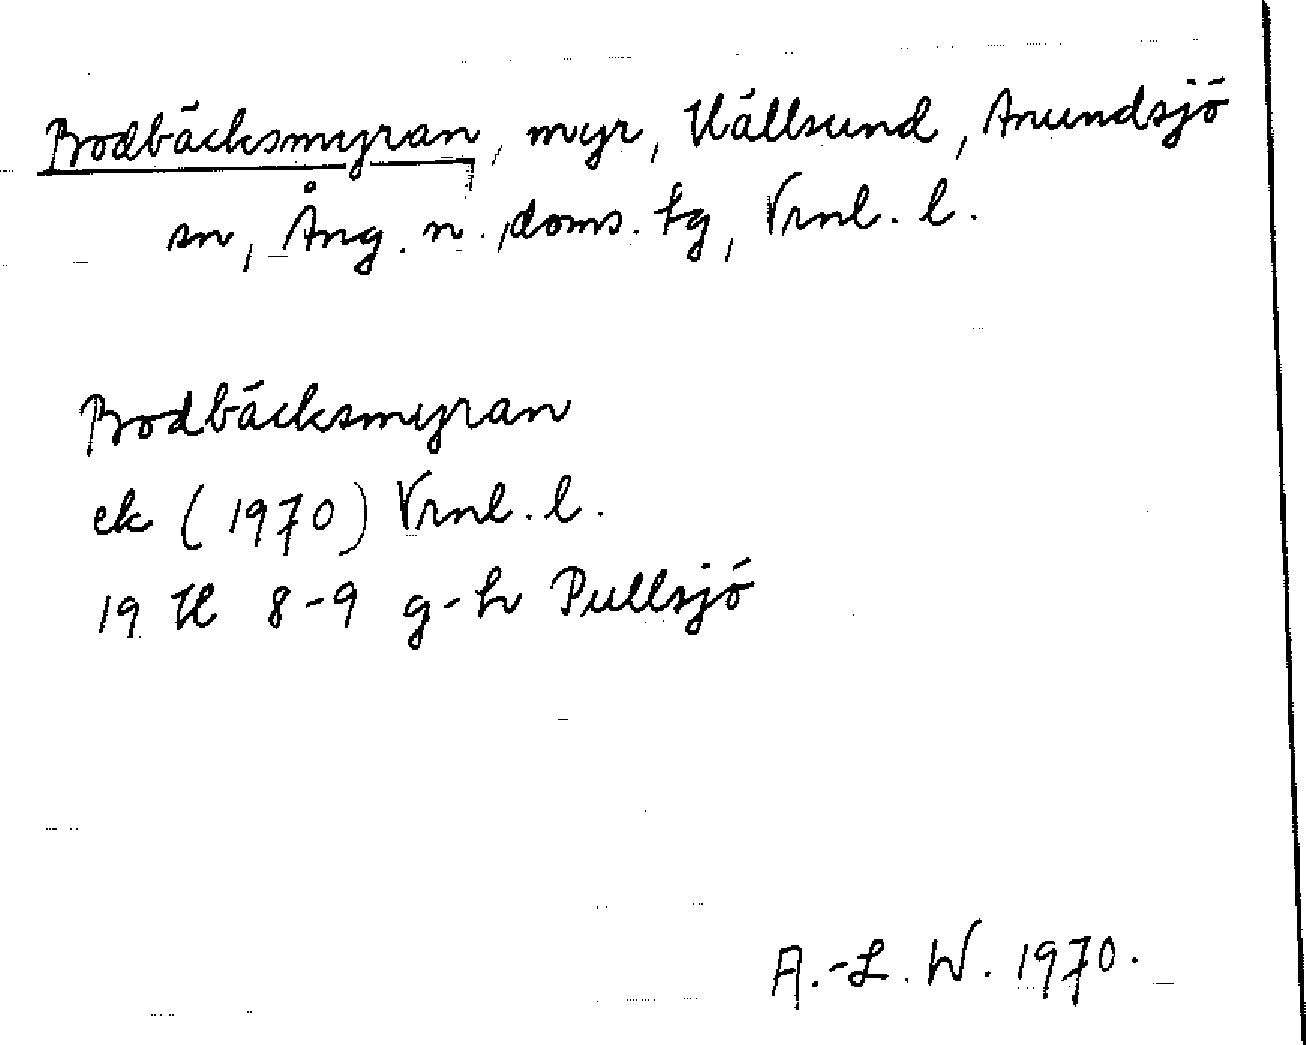 Bodbäcksmyran, myr, Hällsund, Anundsjö
sn, Ång. n. doms. tg, Vrnl. l.
Bodbäcksmyran
ek (1970) Vrnl. l.
19 H 8-9 g-h Pullsjö
A.-L. W. 1970.